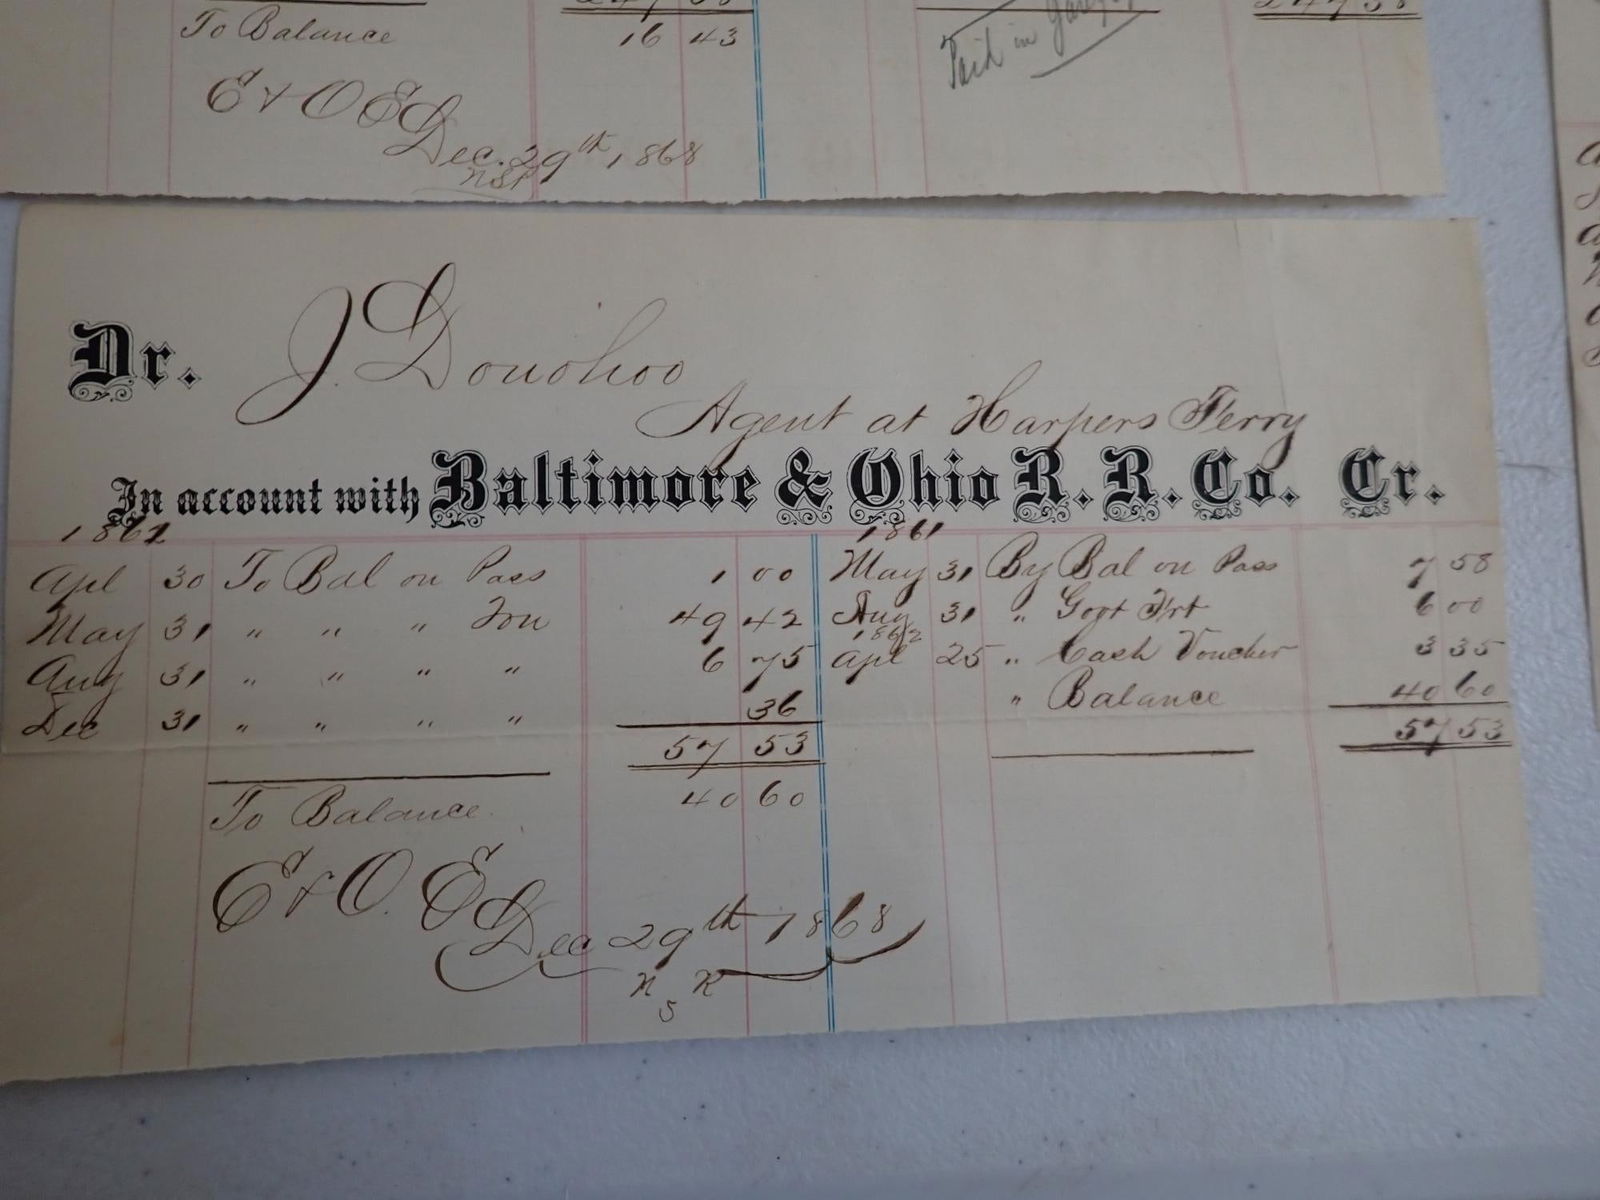 To Balance 16 43
Paid in
E & O E
Dec. 29th, 1868
Dr. J. Donohoo
Agent at Harpers Ferry
In account with Baltimore & Ohio R. R. Co. Cr.
1862 1861
Apl 30 To Bal on Pass 1 00 May 31 By Bal on Pass 7 58
May 31 " " " Ton 49 42 Aug 31 " Govt Frt 6 00
1862
Aug 31 " " " " 6 75 Apl 25 " Cash Voucher 3 35
Dec 31 " " " " 36 " Balance 40 60
57 53 57 53
To Balance 40 60
E & O. E
Dec 29th 1868
N S R